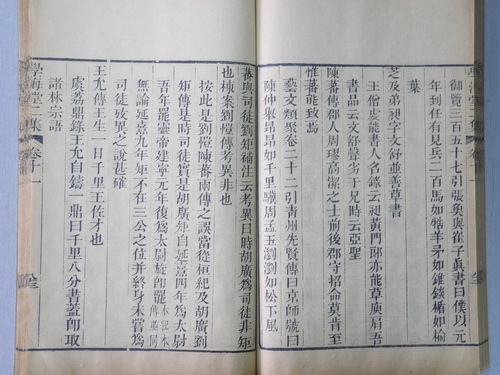 御覽三百五十七引張奐與崔子眞書曰僕以元
年到任有見兵二百馬如牲羊矛如錐鋑楯如楡
葉
芝及弟昶字文舒並善草書
王僧虔能書人名錄云昶黃門郞亦能草庾肩吾
書品云文舒聲劣于兄時云亞聖
陳蕃傳郡人周璆高潔之士前後郡守招命莫肯至
惟蕃能致焉
藝文類聚卷二十二引靑州先賢傳曰京師號曰
陳仲舉昂昂如千里驥周孟玉瀏瀏如松下風
蕃與司徒劉矩補注云考異曰時胡廣爲司徒非矩
也棟案劉愷傳考異非也
按此是劉愷陳蕃兩傳之誤當從桓紀及胡廣劉
矩傳是時司徒實是胡廣矩自延熹四年爲太尉
吾年罷靈帝建寧元年後爲太尉旋卽罷
無論延熹九年矩不在三公之位并終身未嘗爲
司徒考異之說甚確
王允傳王生一日千里王佐才也
虞荔鼎錄王允自鑄一鼎曰千里八分書蓋卽取
諸林宗語
學海堂二集 卷十一